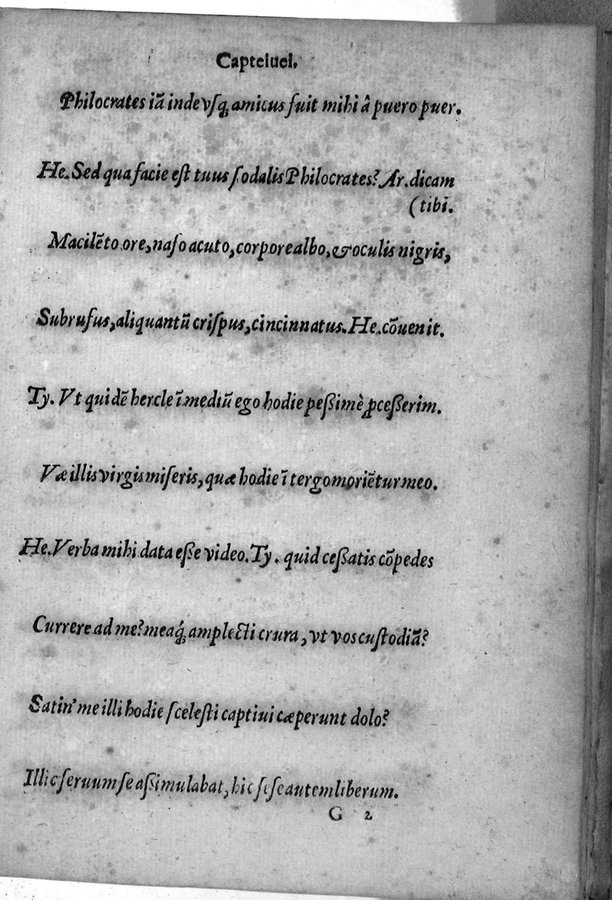 Capteiuei.
Philocrates iã inde vsq; amicus fuit mihi â puero puer.
He. Sed qua facie est tuus sodalis Philocrates? Ar. dicam
(tibi.
Macilẽto ore, naso acuto, corpore albo, & oculis nigris,
Subrufus, aliquantũ crispus, cincinnatus. He. cõuenit.
Ty. Vt quidẽ hercle ĩ mediũ ego hodie peßimè ꝓceßerim.
Væ illis virgis miseris, quæ hodie ĩ tergo moriẽtur meo.
He. Verba mihi data eße video. Ty. quid ceßatis cõpedes
Currere ad me? meaq́; amplecti crura, vt vos custodiã?
Satin' me illi hodie scelesti captiui cæperunt dolo?
Illic seruum se aßimulabat, hic sese autem liberum.
G 2